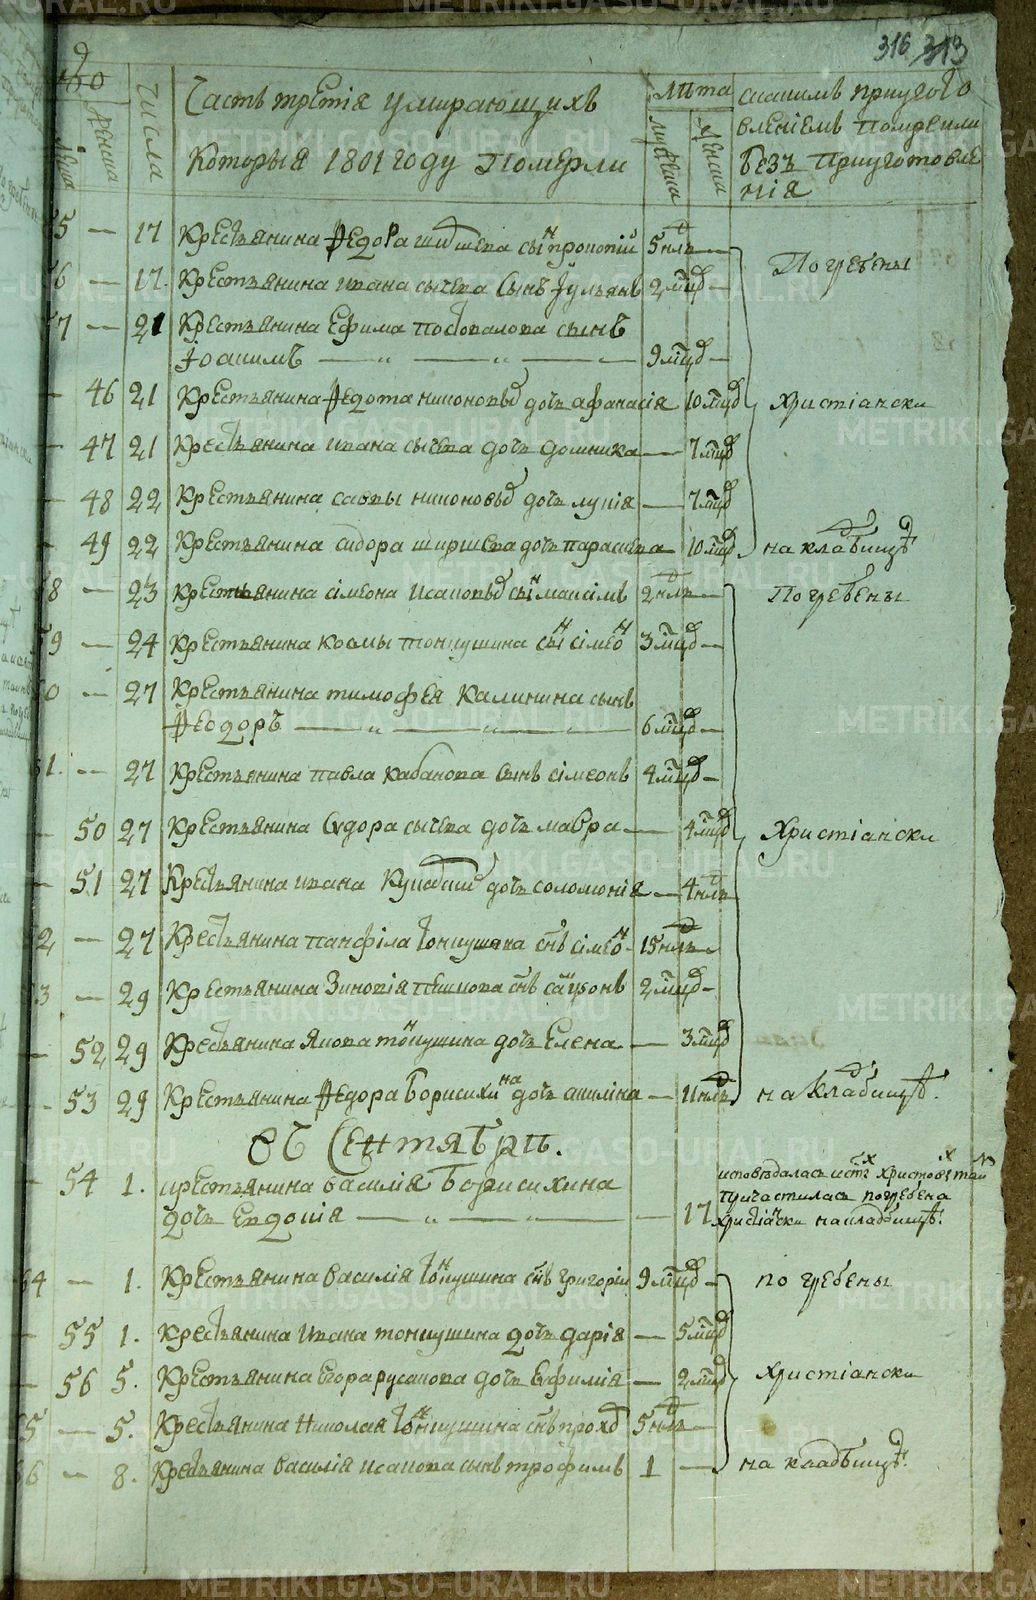 316 313
Часть третія умирающихъ
Которыя 1801 году Померли
числа
женска
Лѣта
мужеска
женска
скакимъ приуготовленіемъ Померли
безъ приуготовленія
55 — 17 Крестьянина Ѳедора сынъ прокопій 5 нлъ —
56 — 17. Крестьянина ивана сычева Сынъ Іульянъ 2 мцд — Погребены
57 — 21 Крестьянина Ефима сынъ
Іоакимъ — „ — „ — 9 мцд —
— 46 21 Крестьянина Ѳедота никоновыхъ дочь афанасія 10 мцд христіански
— 47 21 Крестьянина ивана сычева дочь домника — 7 мцд
— 48 22 Крестьянина саввы никоновыхъ дочь лукія — 7 мцд
— 49 22 Крестьянина сидора ширшева дочь параскева — 10 мцд на кладбищѣ
58 — 23 Крестьянина сімеона исаковыхъ сынъ максімъ 2 нлъ — Погребены
59 — 24 Крестьянина козмы тонкушина сынъ сімеонъ 3 мцд —
60 — 27 Крестьянина тимофея Калинина сынъ
Ѳеодоръ — „ — „ — 6 мцд —
61. — 27 Крестьянина павла Кабакова Сынъ сімеонъ 4 мцд —
— 50 27 Крестьянина Сидора сычева дочь мавра — 4 мцд Христіански
— 51 27 Крестьянина ивана дочь соломонія — 4 нлъ
62 — 27 Крестьянина панфіла тонкушина снъ сімеонъ 15 нлъ —
63 — 29 Крестьянина Зиновія снъ самсонъ 2 мцд —
— 52 29 Крестьянина Якова тонкушина дочь Елена — 3 мцд
— 53 29 Крестьянина Ѳедора Борисихина дочь акилина — 11 нлъ на Кладбищѣ.
Въ Сентябри.
— 54 1. крестьянина василія Борисихина
дочь Евдокія — „ — „ — 17
исповѣдалась и стхъ христовыхъ таинъ
причастилась погребена
христіански на кладбищѣ.
64 — 1. Крестьянина василія тонкушина снъ григоріи 9 мцд — погребены
— 55 1. Крестьянина Ивана тонкушина дочь дарія — 5 мцд
— 56 5. Крестьянина Егора русакова дочь Евфимія — 2 мцд христіански
65 — 5. Крестьянина Николая тонкушина снъ прохоръ 5 нлъ —
66 — 8. Крестьянина василія исакова сынъ трофимъ 1 — на кладбищѣ.
METRIKI.GASO-URAL.RU